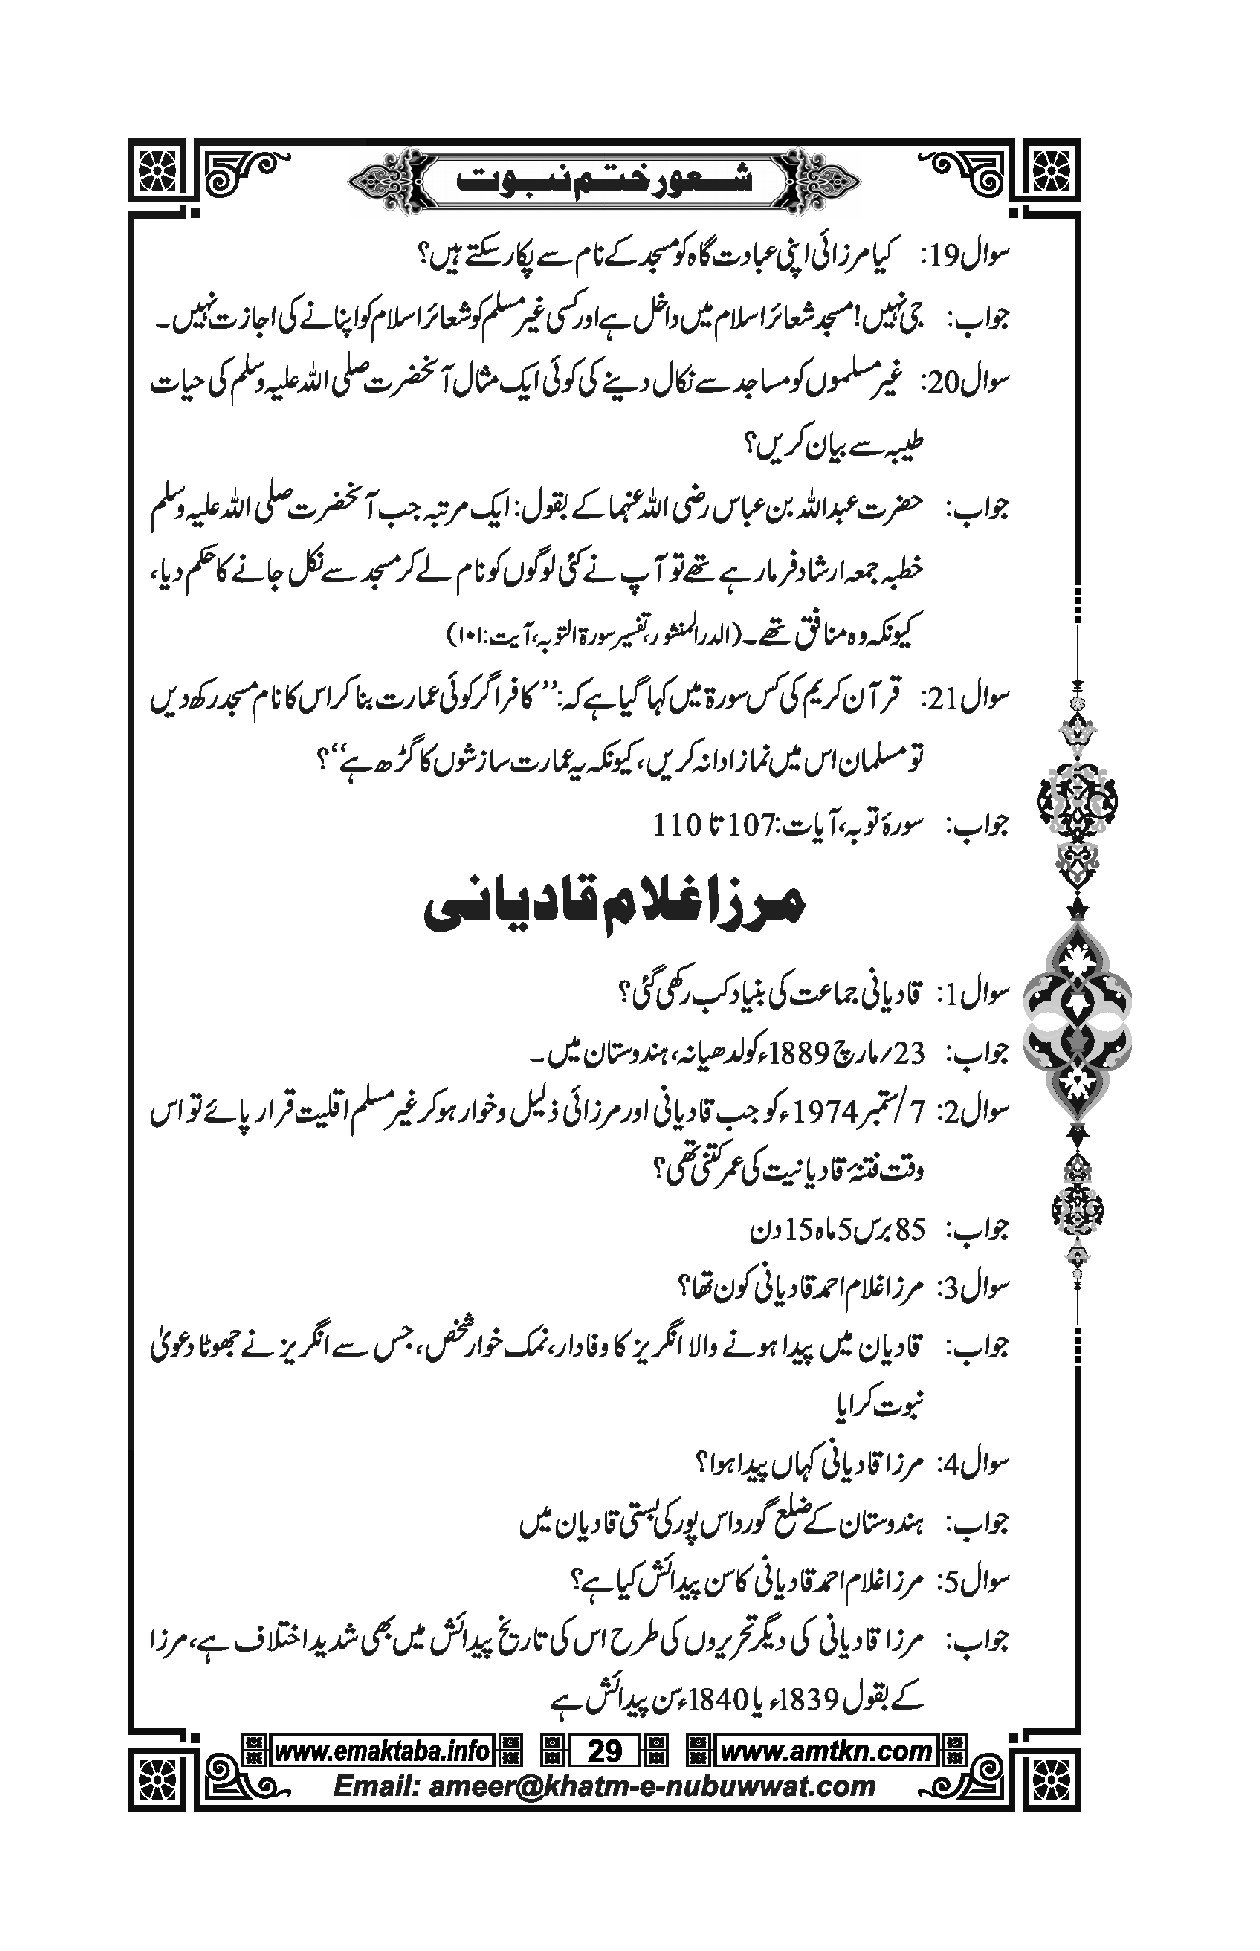 شعور ختم نبوت
سوال19: کیا مرزائی اپنی عبادت گاہ کو مسجد کے نام سے پکار سکتے ہیں؟
جواب: جی نہیں! مسجد شعائر اسلام میں داخل ہے اور کسی غیر مسلم کو شعائر اسلام کو اپنانے کی اجازت نہیں۔
سوال20: غیر مسلموں کو مساجد سے نکال دینے کی کوئی ایک مثال آنحضرت صلی اللہ علیہ وسلم کی حیات
طیبہ سے بیان کریں؟
جواب: حضرت عبداللہ بن عباس رضی اللہ عنہما کے بقول: ایک مرتبہ جب آنحضرت صلی اللہ علیہ وسلم
خطبہ جمعہ ارشاد فرما رہے تھے تو آپ نے کئی لوگوں کو نام لے کر مسجد سے نکل جانے کا حکم دیا،
کیونکہ وہ منافق تھے۔ (الدر المنثور، تفسیر سورۃ التوبہ، آیت:۱۰۱)
سوال21: قرآن کریم کی کس سورۃ میں کہا گیا ہے کہ: ’’کافر اگر کوئی عمارت بنا کر اس کا نام مسجد رکھ دیں
تو مسلمان اس میں نماز ادا نہ کریں، کیونکہ یہ عمارت سازشوں کا گڑھ ہے‘‘؟
جواب: سورۂ توبہ، آیات:107 تا 110
مرزا غلام قادیانی
سوال1: قادیانی جماعت کی بنیاد کب رکھی گئی؟
جواب: 23/مارچ 1889ء کو لدھیانہ، ہندوستان میں۔
سوال2: 7/ستمبر 1974ء کو جب قادیانی اور مرزائی ذلیل و خوار ہو کر غیر مسلم اقلیت قرار پائے تو اس
وقت فتنۂ قادیانیت کی عمر کتنی تھی؟
جواب: 85 برس 5 ماہ 15 دن
سوال3: مرزا غلام احمد قادیانی کون تھا؟
جواب: قادیان میں پیدا ہونے والا انگریز کا وفادار، نمک خوار شخص، جس سے انگریز نے جھوٹا دعویٰ
نبوت کرایا
سوال4: مرزا قادیانی کہاں پیدا ہوا؟
جواب: ہندوستان کے ضلع گورداس پور کی بستی قادیان میں
سوال5: مرزا غلام احمد قادیانی کا سن پیدائش کیا ہے؟
جواب: مرزا قادیانی کی دیگر تحریروں کی طرح اس کی تاریخ پیدائش میں بھی شدید اختلاف ہے، مرزا
کے بقول 1839ء یا 1840ء سن پیدائش ہے
www.emaktaba.info 29 www.amtkn.com
Email: ameer@khatm-e-nubuwwat.com